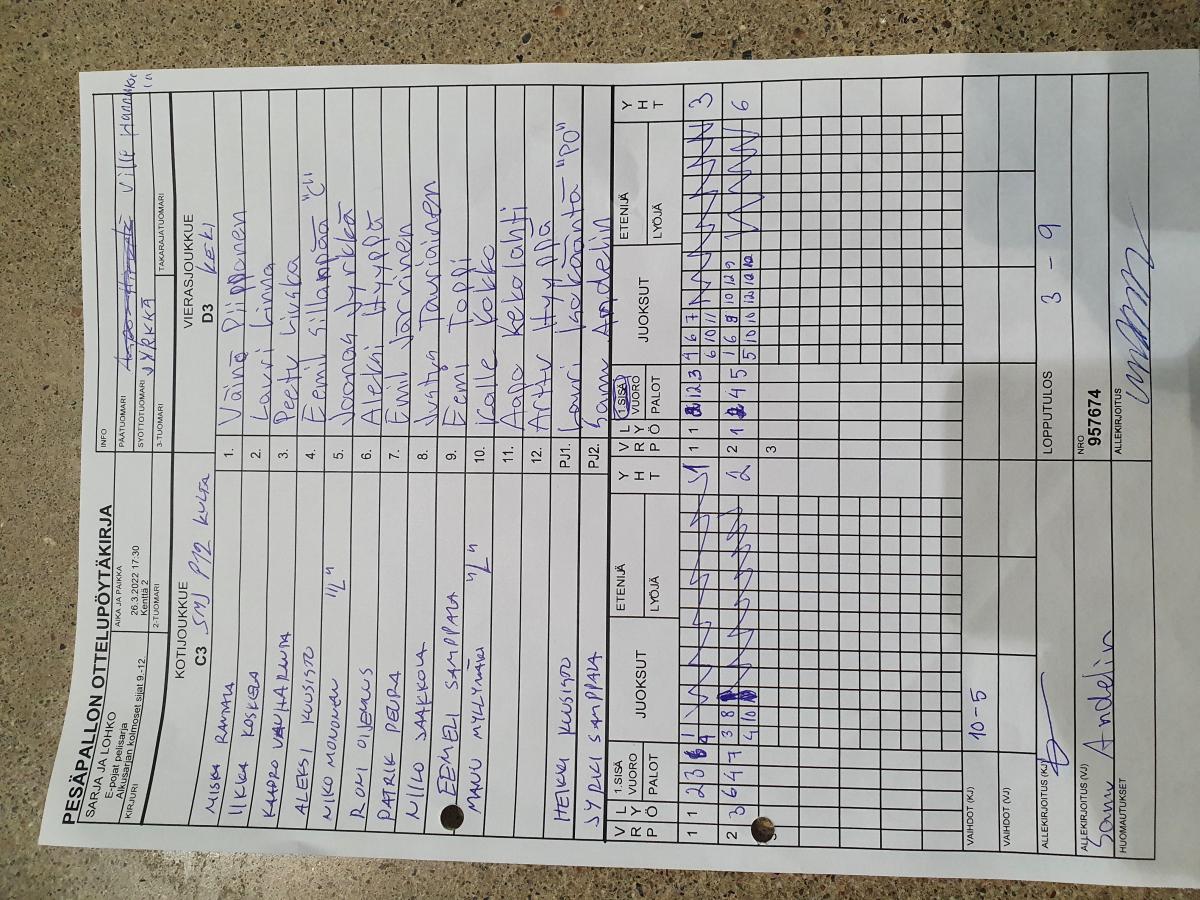 PESÄPALLON OTTELUPÖYTÄKIRJA
SARJA JA LOHKO
E-pojat pelisarja
Alkusarjan kolmoset sijat 9.-12.
AIKA JA PAIKKA
26.3.2022 17:30
Kenttä 2
KIRJURI
2-TUOMARI
INFO
PÄÄTUOMARI Ville
SYÖTTÖTUOMARI JYRKKÄ
3-TUOMARI
TAKARAJATUOMARI
KOTIJOUKKUE
C3 SMJ P12 KULTA
VIERASJOUKKUE
D3 KEKI
MISKA RANTALA 1. Väinö Piipponen
IIKKA KOSKELA 2. Lauri Linna
KAAPRO 3. Peetu Liuska
ALEKSI KUUSISTO 4. Eemil Sillanpää "C"
NIKO MONONEN "L" 5. Joonas Jyrkkä
RONI OIJENNUS 6. Aleksi Hyyppä
PATRIK PEURA 7. Emil Jarvinen
NIILO JAAKKOLA 8. Vatju Tauriainen
EEMELI SAMPPALA 9. Eemi Toppi
MANU MYLLYMÄKI "L" 10. Kalle Kokko
11. Aapo Kekolahti
12. Arttu Hyyppä
HEIKKI KUUSISTO PJ1. Lauri Isokääntä "PO"
JYRKI SAMPPALA PJ2. Samu Andelin
V P L R Y Ö 1.SISÄ VUORO PALOT JUOKSUT ETENIJÄ LYÖJÄ Y H T
V P L R Y Ö 1.SISÄ VUORO PALOT JUOKSUT ETENIJÄ LYÖJÄ Y H T
1 1 2 3 1 1 1 1 2 3 4 6 7 3
4 6 10 11
2 3 6 4 7 3 8 2 2 1 4 5 1 6 8 10 12 9 6
4 10 5 10 10 12 12 12
3 3
VAIHDOT (KJ) 10-5
VAIHDOT (VJ)
ALLEKIRJOITUS (KJ)
LOPPUTULOS 3 - 9
ALLEKIRJOITUS (VJ) Samu Andelin
NRO
957674
HUOMAUTUKSET
ALLEKIRJOITUS